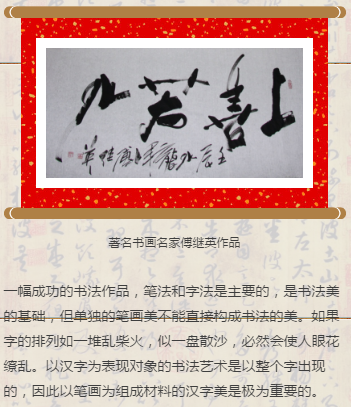 上善若水
著名书画名家傅继英作品
一幅成功的书法作品，笔法和字法是主要的，是书法美
的基础，但单独的笔画美不能直接构成书法的美。如果
字的排列如一堆乱柴火，似一盘散沙，必然会使人眼花
缭乱。以汉字为表现对象的书法艺术是以整个字出现
的，因此以笔画为组成材料的汉字美是极为重要的。